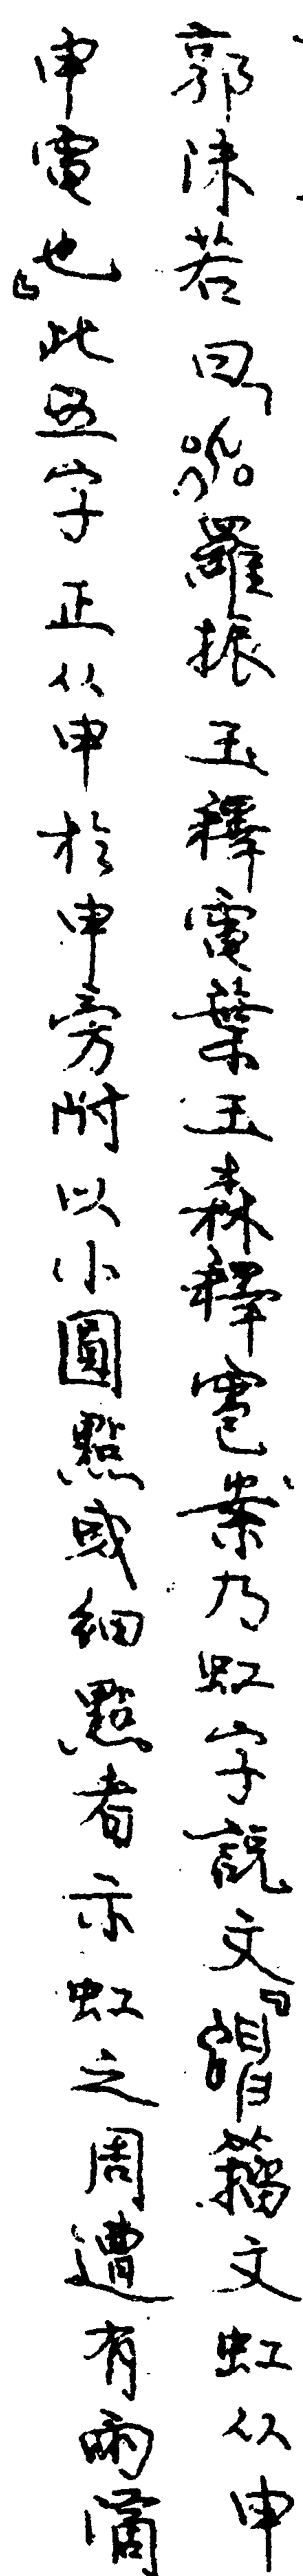 郭沫若曰「羅振玉釋電葉玉森釋雹案乃虹字說文『籀文虹从申
申電也』此五字正从申於申旁附以小圓點或細點者示虹之周遭有雨滴